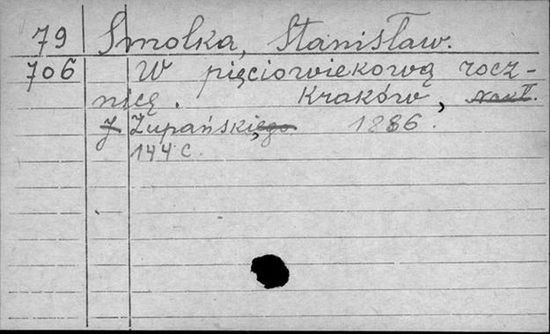 79 Smolka, Stanisław.
706 W pięciowiekową rocz-
nicę. Kraków,
J Żupański 1886.
144 c.